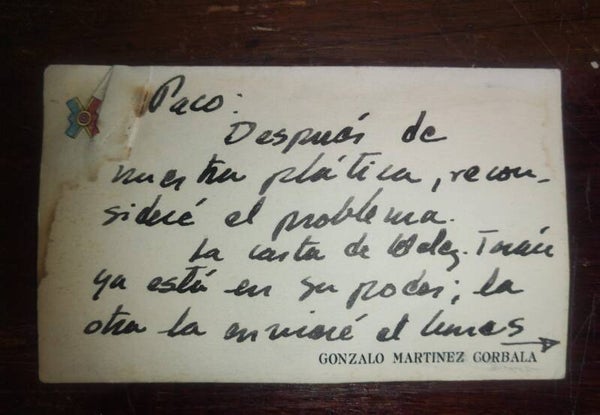 Paco:
Después de
nuestra plática, recon-
sideré el problema.
La carta de
ya está en su poder; la
otra la enviaré el lunes
GONZALO MARTINEZ CORBALA